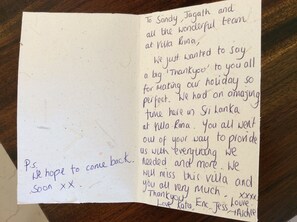 To Sandy, Jagath and
all the wonderful team
at Villa Rima,
We just wanted to say
a big 'Thankyou' to you all
for making our holiday so
perfect. We had an amazing
time here in Sri Lanka
at Villa Rima. You all went
out of your way to provide
us with everything we
needed and more. We
will miss this villa and
you all very much. xxxx
Thankyou
Love Kate, Eric, Jess,
P.S.
We hope to come back
soon xx.